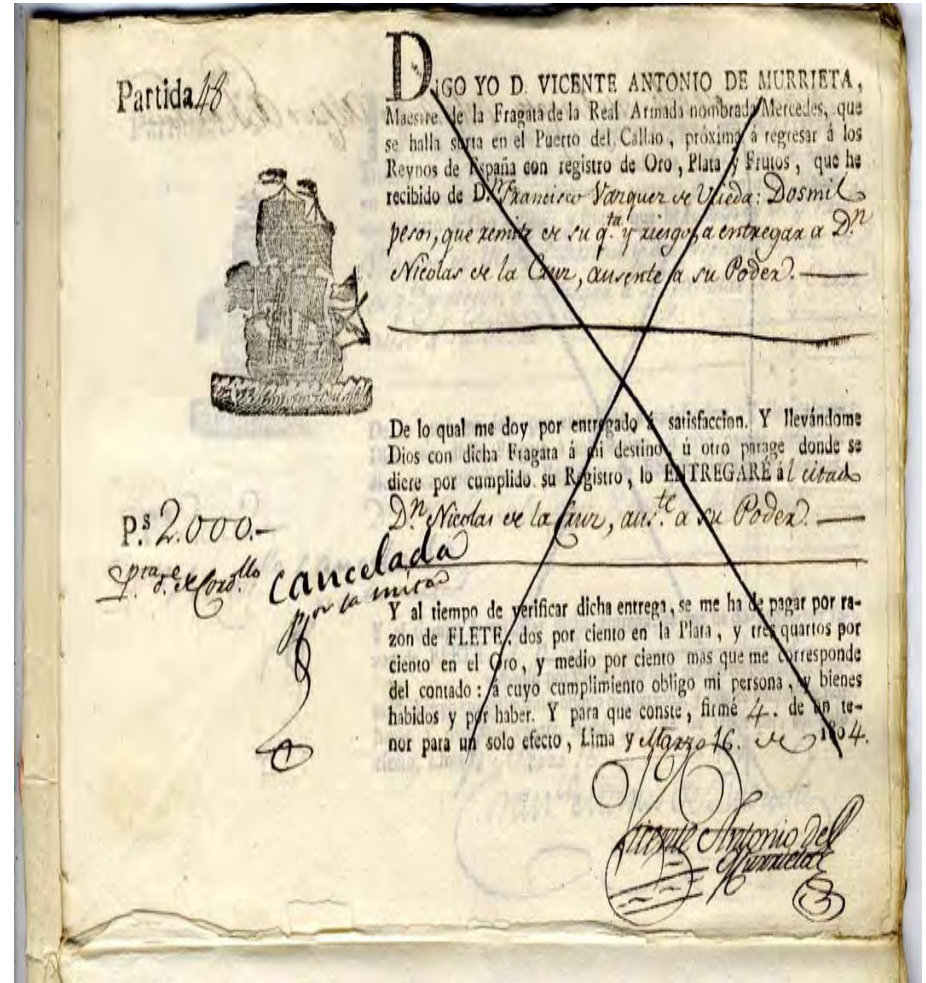 Partida 48
DIGO YO D. VICENTE ANTONIO DE MURRIETA,
Maestre de la Fragata de la Real Armada nombrada Mercedes, que
se halla surta en el Puerto del Callao, próxima á regresar á los
Reynos de España con registro de Oro, Plata y Frutos, que he
recibido de D.n Francisco Vazquez de Uzieda: Dosmil
pesos, que remite de su q.ta y riesgo, a entregar a D.n
Nicolas de la Cruz, ausente a su Poder.
De lo qual me doy por entregado á satisfaccion. Y llevándome
Dios con dicha Fragata á mi destino, ú otro parage donde se
diere por cumplido su Registro, lo ENTREGARÉ ál citado
D.n Nicolas de la Cruz, aus.te a su Poder.
P.s 2.000.-
cancelada
por la mitad
Y al tiempo de verificar dicha entrega, se me ha de pagar por ra-
zon de FLETE, dos por ciento en la Plata, y tres quartos por
ciento en el Oro, y medio por ciento mas que me corresponde
del contado: á cuyo cumplimiento obligo mi persona, y bienes
habidos y por haber. Y para que conste, firmé 4. de un te-
nor para un solo efecto, Lima y Marzo 16. de 1804.
Vicente Antonio de
Murrieta